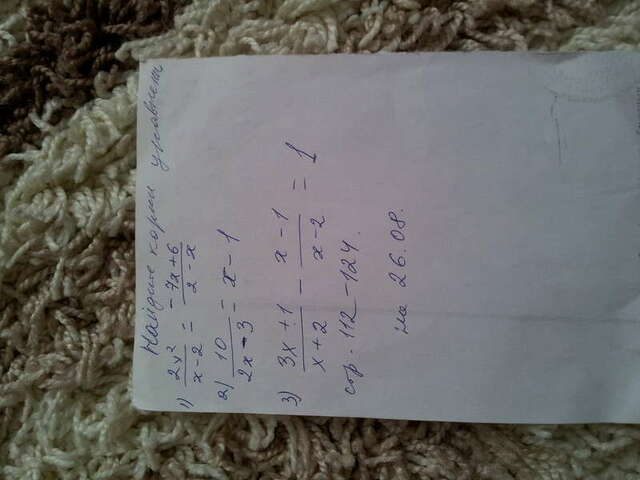 Найдите корни уравнения
1) 2y²/x-2 = -7x+6/2-x
2) 10/2x-3 = x-1
3) 3x+1/x+2 - x-1/x-2 = 1
стр. 112-124.
на 26.08.